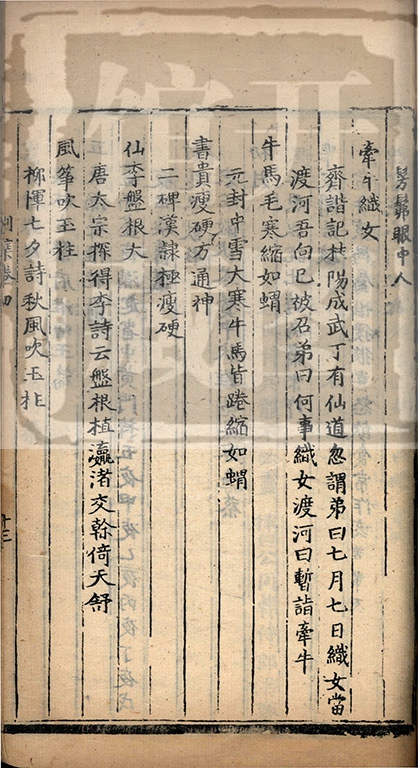 髣髴眼中人
牽牛織女
齊諧記桂陽成武丁有仙道忽謂弟曰七月七日織女當
渡河吾向已被召弟曰何事織女渡河曰暫詣牽牛
牛馬毛寒縮如蝟
元封中雪大寒牛馬皆踡縮如蝟
書貴瘦硬方通神
二碑漢隸極瘦硬
仙李盤根大
唐太宗探得李詩云盤根植瀛渚交榦倚天舒
風箏吹玉柱
柳惲七夕詩秋風吹玉柱
十三